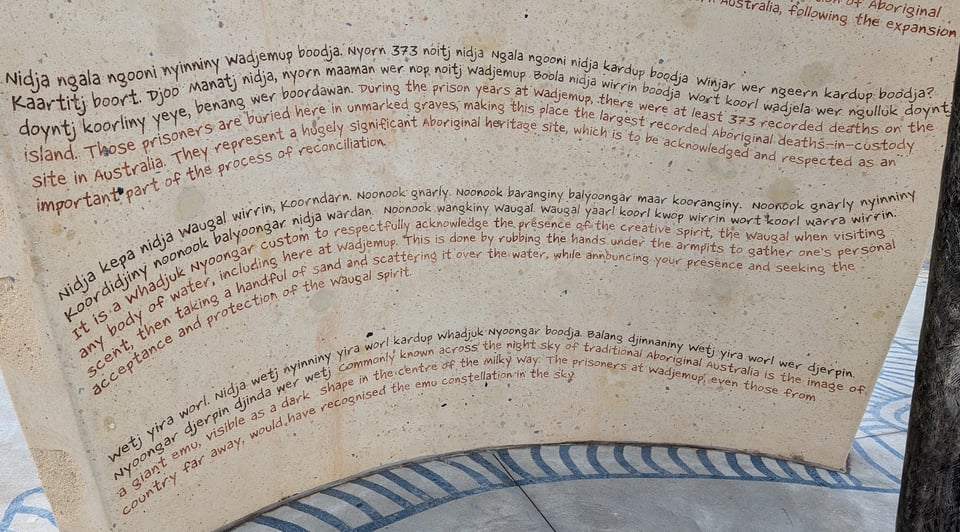 of Aboriginal
Australia, following the expansion
Nidja ngala ngooni nyinniny Wadjemup boodja. Nyorn 373 noitj nidja Ngala ngooni nidja kardup boodja Winjar wer ngeern kardup boodja?
Kaartitj boort. Djoo Manatj nidja, nyorn maaman wer nop noitj Wadjemup Boola nidja wirrin boodja Wort koorl wadjela wer ngulluk doyntj
doyntj koorliny yeye, benang wer boordawan. During the prison years at Wadjemup, there were at least 373 recorded deaths on the
island. Those prisoners are buried here in unmarked graves, making this place the largest recorded Aboriginal deaths-in-custody
site in Australia. They represent a hugely significant Aboriginal heritage site, which is to be acknowledged and respected as an
important part of the process of reconciliation.
Nidja kepa nidja Waugal wirrin, Koorndarn. Noonook gnarly. Noonook baranginy balyoongar maar kooranginy. Noonook gnarly nyinniny
Koordidjiny noonook balyoongar nidja wardan. Noonook wangkiny Waugal. Waugal yaarl koorl kwop wirrin wort koorl warra wirrin.
It is a Whadjuk Nyoongar custom to respectfully acknowledge the presence of the creative spirit, the Waugal when visiting
any body of water, including here at Wadjemup. This is done by rubbing the hands under the armpits to gather one's personal
scent, then taking a handful of sand and scattering it over the water, while announcing your presence and seeking the
acceptance and protection of the Waugal spirit.
Wetj yira worl. Nidja wetj nyinniny yira worl kardup Whadjuk Nyoongar boodja. Balang djinnaniny Wetj yira worl wer djerpin.
Nyoongar djerpin djinda wer wetj Commonly known across the night sky of traditional Aboriginal Australia is the image of
a giant emu, visible as a dark shape in the centre of the milky way. The prisoners at Wadjemup, even those from
country far away, would have recognised the emu constellation in the sky